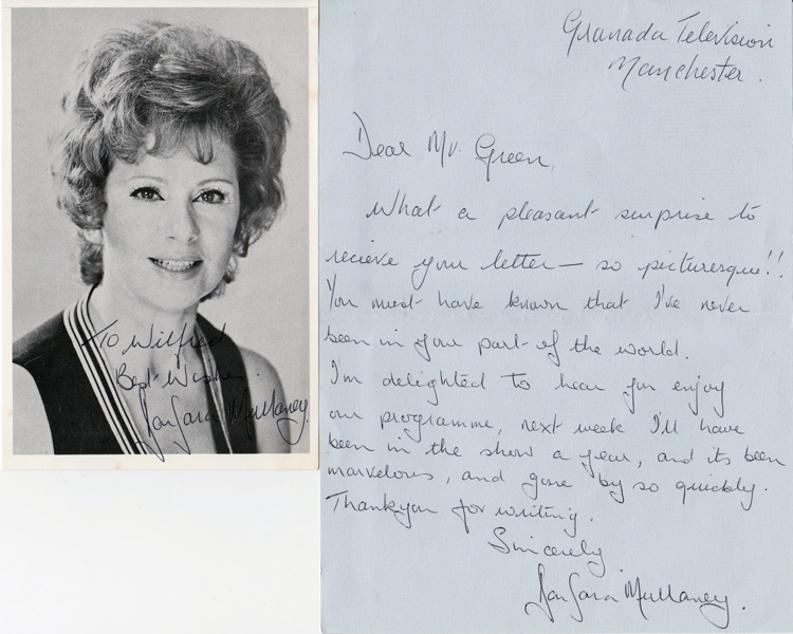 To Wilfred
Best Wishes.
Barbara Mullaney.
Granada Television
Manchester.
Dear Mr. Green,
What a pleasant surprise to
recieve your letter — so picturesque!!
You must have known that I've never
been in your part of the world.
I'm delighted to hear you enjoy
our programme, next week I'll have
been in the show a year, and its been
marvelous, and gone by so quickly.
Thankyou for writing.
Sincerely
Barbara Mullaney.